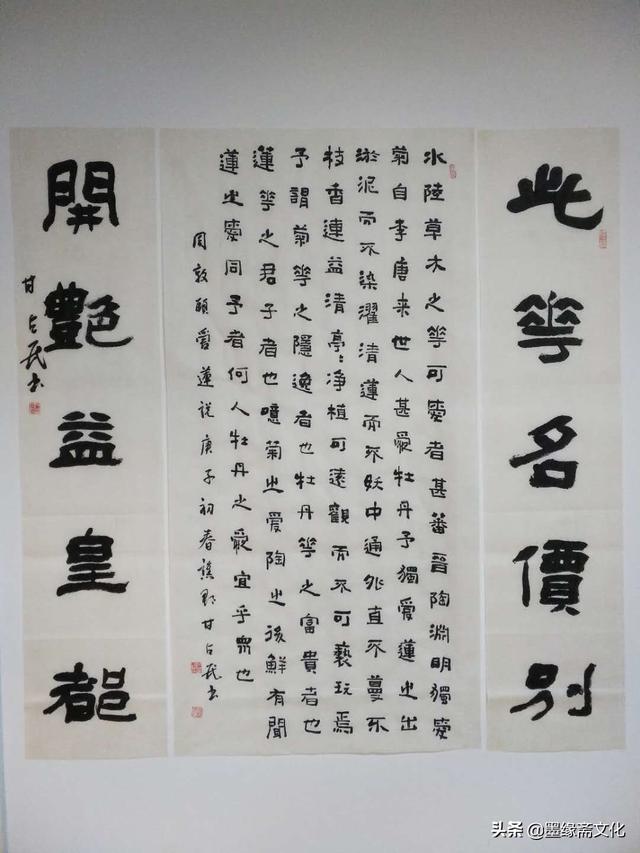 此華名價别
水陸草木之華可愛者甚蕃晉陶淵明獨愛
菊自李唐来世人甚愛牡丹予獨愛蓮之出
淤泥而不染濯清蓮而不妖中通外直不蔓不
枝香連益清亭〻净植可遠觀而不可褻玩焉
予謂菊華之隱逸者也牡丹華之富貴者也
蓮華之君子者也噫菊之愛陶之後鮮有聞
蓮之愛同予者何人牡丹之愛宜乎眾也
周敦頤愛蓮说庚子初春譙郡甘占民书
開艷益皇都
甘占民书
头条 @墨缘斋文化